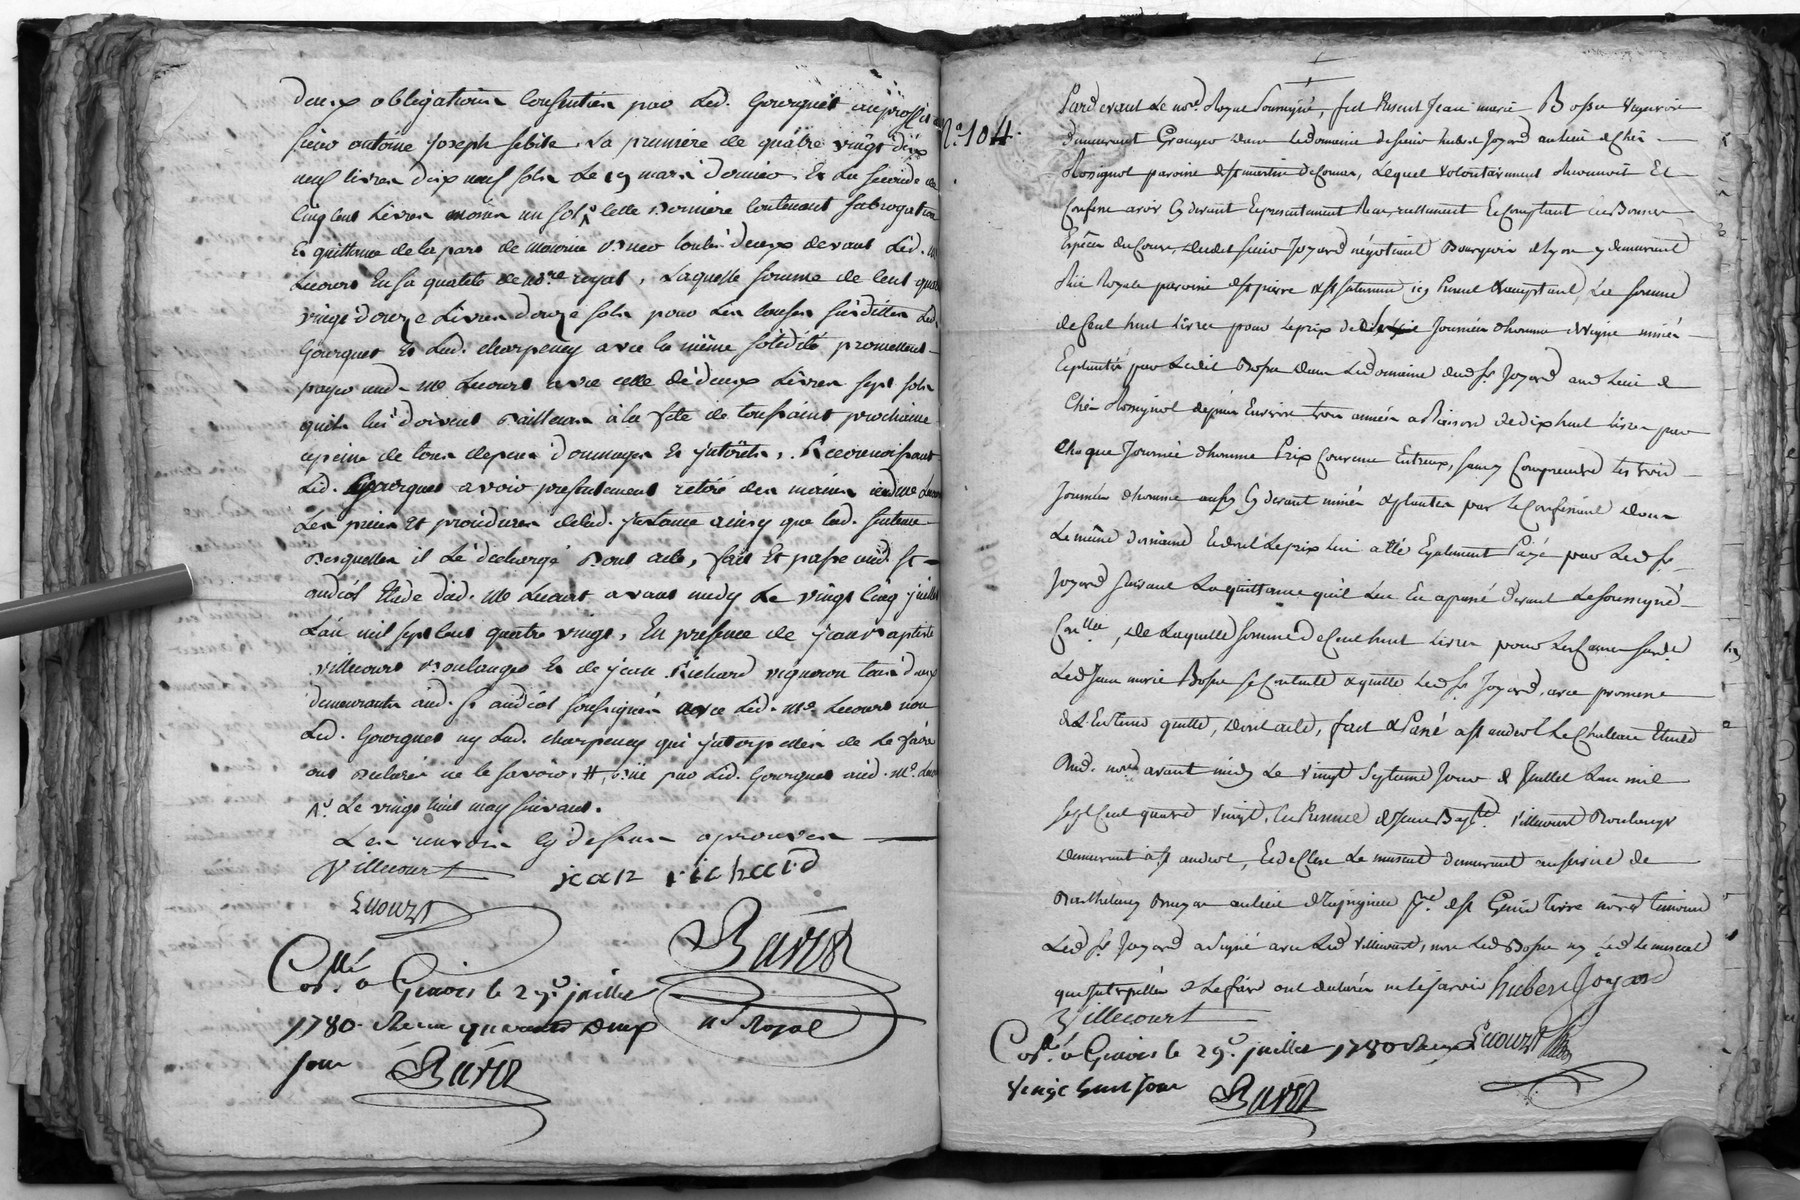 deux obligations consenties par led. Gourguet au proffit de
sieur antoine joseph sibile, la premiere de quatre vingt dix
neuf livres dix neuf sols le 19 mars dernier. Et la seconde de
cinq cent livres moins un sol ^ cette derniere contenant subrogation
Et quittance de la part de tous deux devant Led. me
Lecourt En sa qualité de nore royal, Laquelle somme de cent quatre
vingt douze Livres douze sols pour les causes susdittes Led.
Gourguet Et Lad. charpeney avec la même solidité promettent
payer aud. me Lecourt avec celle de deux Livres sept sols
quils lui doivent d'ailleurs à la fete de toussaint prochaine
apeine de tous depens dommages Et jnterets, Reconnoissant
Led. Gourguet avoir presentement retiré des mains dud me Lecourt
Les pieces Et procédures de lad. jnstance ainsy que lad. sentence
desquelles il Le decharge Dont acte, fait Et passé aud. St
andéol Etude dud. Me Lecourt avant midy Le vingt cinq juillet
L'an mil sept cent quatre vingt, En presence de jean baptiste
villecourt Boulanger Et de jean Richard vigneron tous deux
demeurants aud. St andéol soussignés avec Led. Me. Lecourt non
Led. Gourguet ny Lad. charpeney qui jnterpellés de Le faire
ont declarés ne le savoir, #, par Led. Gourguet aud. Me. Lecourt
^. Le vingt huit may suivant.
Les renvois cy dessus aprouvés
Villecourt jean richard
Lecourt
Barrot
Conllé a Givors le 29e. juillet
1780. Recu quarante deux
sous Barrot
nre Royal
No. 104.
Pardevant Le nore Royal Soussigné, fut Present Jean marie Bosse vigneron
demeurant Granger dans Ledomaine de sieur hubert Joyard au lieu de Chés
Rossignol paroisse de St martin de Cornas, Lequel volontairement Reconnoit Et
Confesse avoir cy devant Et presentement Recu reellement Et Comptant En Bonnes
Especes du Cours, dudit sieur Joyard négotiant Bourgeois de Lyon y demeurant
Place Royale paroisse de St pierre et St saturnin icy Present & acceptant, La somme
de Cent huit Livres pour Le prix de six Journées dhomme de vigne minées
Et plantés par Ledit Bosse dans Ledomaine dud Sr. Joyard aud Lieu de
Chés Rossignol depuis Environ trois années a Raison de dix huit Livres par
Chaque Journée dhomme Prix Convenu Entreux, sans y Comprendre Les trois
Journées dhomme aussy cy devant minées & plantées par Le Confessant dans
Le même domaine Et dont Le prix Lui a été Egalement Payé par Led Sr.
Joyard suivant La quittance quil Lui En a passé devant Le soussigné
Conllée, De Laquelle somme de Cent huit Livres pour Les Causes susd.
Led Jean marie Bosse se Contente & quitte Led Sr. Joyard, avec promesse
de L'En tenir quitte, Dont acte, fait & Passé a St andeol Le Château Etude
Dud. nore avant midy Le vingt Septieme Jour de Juillet L'an mil
sept Cent quatre vingt, En Presence de Jean Bapte. villecourt Boulanger
Demeurant a St andeol, Et de Clere Le muscat demeurant au service de
Barthelemy au Lieu de pse. de St Genis terre noire temoins
Led Sr. Joyard a signé avec Led villecourt, non Led Bosse ny Led Lemuscat
qui Interpellés de Le faire ont declarés ne Le savoir hubert Joyard
Villecourt
Conllé a Givors le 29e. juillet 1780 Recu Lecourt
vingt huit sous Barrot